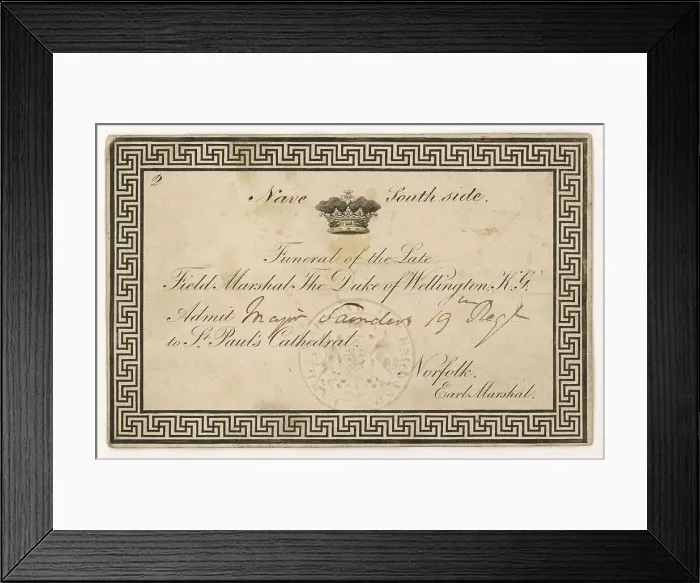 2
Nave South side.
Funeral of the Late
Field Marshal The Duke of Wellington, K.G.
Admit Major Saunders 19th Regt
to St. Paul's Cathedral.
Norfolk.
Earl Marshal.